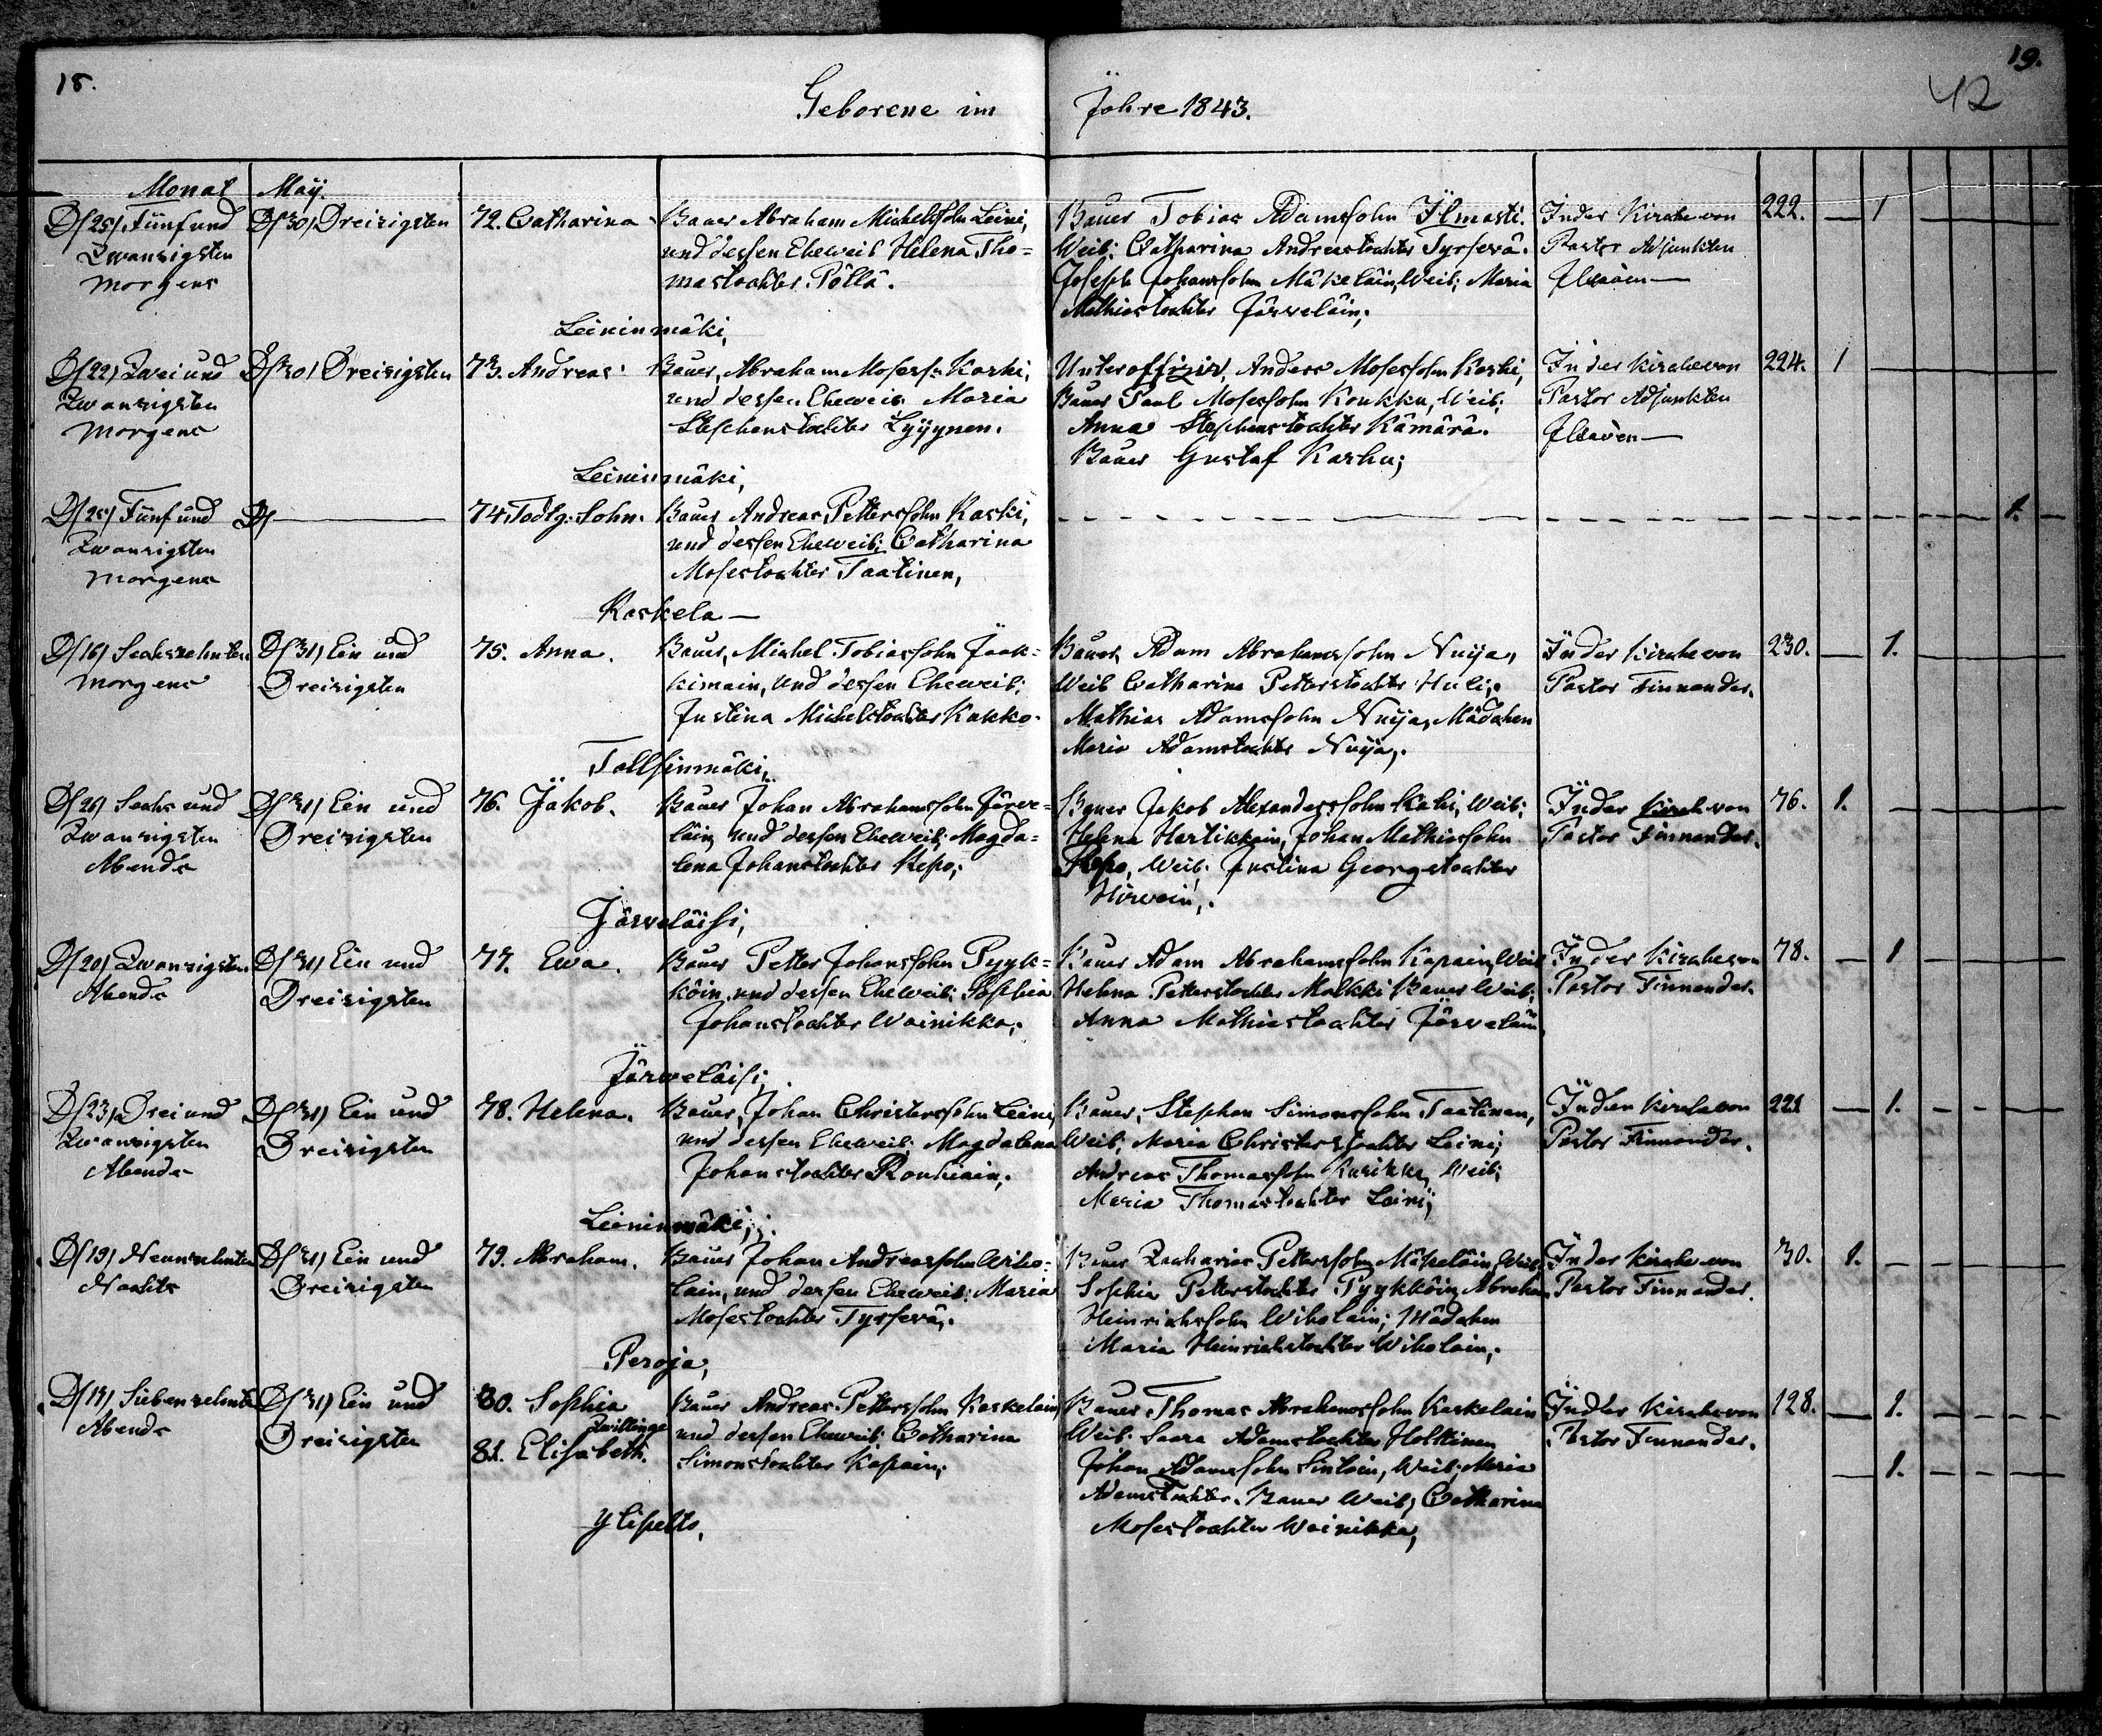 18.
19.
42
Geborene im Jahre 1843.
Monat May
D/25/ Fünf und
Zwanzigsten
Morgens
D/30/ Dreizigsten
72. Catharina
Bauer Abraham Michelssohn Leini,
und dessen Eheweib Helena Tho=
mastochter Pöllä.
Leininmäki,
Bauer Tobias Adamssohn Ilmasti.
Weib: Catharina Andreastochter Tyrsevä.
Joseph Johanssohn Mäkeläin, Weib; Maria
Mathiastochter Järveläin;
In der Kirche von
Pastor Adjunkten
222. — 1
D/22/ Zwei und
Zwanzigsten
Morgens
D/30/ Dreizigsten
73. Andreas
Bauer, Abraham Mosess: Koski,
und dessen Eheweib Maria
Stephanstochter Lyijynen.
Leininmäki,
Unteroffizir, Anders Mosessohn Koski,
Bauer Paul Mosessohn Koukku, Weib;
Anna Stephanstochter Kämärä.
Bauer Gustaf Karhu;
In der Kirche von
Pastor Adjunkten
224. 1
D/25/ Fünf und
Zwanzigsten
Morgens
D/ —
74. Todtg: Sohn.
Bauer Andreas Petterssohn Koski,
und dessen Eheweib; Catharina
Mosestochter Taatinen,
Koskela —
1.
D/16/ Sechszehnten
Morgens
D/31/ Ein und
Dreizigsten
75. Anna.
Bauer, Michel Tobiassohn Jääs=
kimain, und dessen Eheweib;
Justina Michelstochter Kukko.
Tallsinmäki,
Bauer, Adam Abrahamssohn Nuija,
Weib Catharina Petterstochter Huli;
Mathias Adamssohn Nuija, Mädchen
Maria Adamstochter Nuija,
In der Kirche von
Pastor Finnander.
230. — 1.
D/26/ Sechs und
Zwanzigsten
Abends
D/31/ Ein und
Dreizigsten
76. Jakob.
Bauer Johan Abrahamssohn Järve=
läin, und dessen Eheweib; Magda=
lena Johanstochter Repo;
Järveläisi,
Bauer Jakob Alexanderssohn Kahi, Weib;
Helena Hartikkain, Johan Mathiassohn
Repo, Weib; Justina Georgstochter
Hirvein,
In der Kirche von
Pastor Finnander.
76. 1.
D/20/ Zwanzigsten
Abends
D/31/ Ein und
Dreizigsten
77. Ewa.
Bauer Petter Johanssohn Pyyk=
köin, und dessen Eheweib; Sophia
Johanstochter Wainikka;
Järveläisi,
Bauer Adam Abrahamssohn Kapain, Weib
Helena Petterstochter Malkki Bauer Weib;
Anna Mathiastochter Järveläin
In der Kirche von
Pastor Finnander.
78. — 1
D/23/ Drei und
Zwanzigsten
Abends
D/31/ Ein und
Dreizigsten
78. Helena.
Bauer, Johan Christerssohn Leini,
und dessen Eheweib; Magdalena
Johanstochter Rouhiain,
Leininmäki;
Bauer, Stephan Simonssohn Taatinen,
Weib; Maria Christerstochter Leini;
Andreas Thomassohn Kurikka, Weib;
Maria Thomastochter Leini;
In der Kirche von
Pastor Finnander.
221 — 1.
D/19/ Neunzehnten
Nachts
D/31/ Ein und
Dreizigsten
79. Abraham.
Bauer Johan Andreassohn Wiho=
lain, und dessen Eheweib: Maria
Mosestochter Tyrsevä,
Peroja,
Bauer Zacharias Petterssohn Mäkeläin, Weib
Sophia Petterstochter Pyykköin, Abraham
Heinrichssohn Wiholain; Mädchen
Maria Heinrichstochter Wiholain,
In der Kirche von
Pastor Finnander.
30. 1.
D/17/ Siebenzehnten
Abends
D/31/ Ein und
Dreizigsten
80. Sophia
Zwillinge
81. Elisabeth.
Bauer Andreas Petterssohn Koskelain,
und dessen Eheweib; Catharina
Simonstochter Kapain,
Ylipelto,
Bauer Thomas Abrahamssohn Koskelain
Weib: Saara Adamstochter Holttinen
Johan Adamssohn Sintoin, Weib; Maria
Adamstochter. Bauer Weib; Catharina
Mosestochter Wainikka,
In der Kirche von
Pastor Finnander.
128. — 1.
— 1.